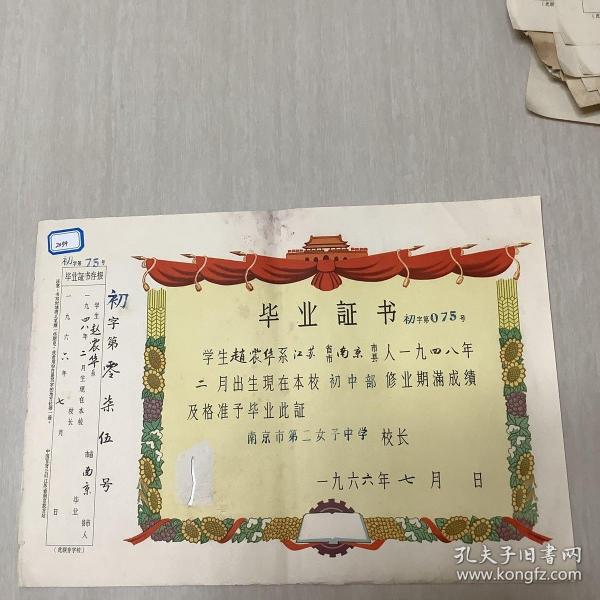 2034
初字第75号
毕业証书存根
学生赵震华系
一九四八年二月生現在本校
省市南京市县人
毕业
校长
一九六六年七月 日
(此联存学校)
初字第零柒伍号
毕业証书
初字第075号
学生赵震华系江苏省市南京市县人一九四八年
二月出生現在本校初中部修业期滿成績
及格准予毕业此証
南京市第二女子中学 校长
一九六六年七月 日
孔夫子旧书网
www.kongfz.com